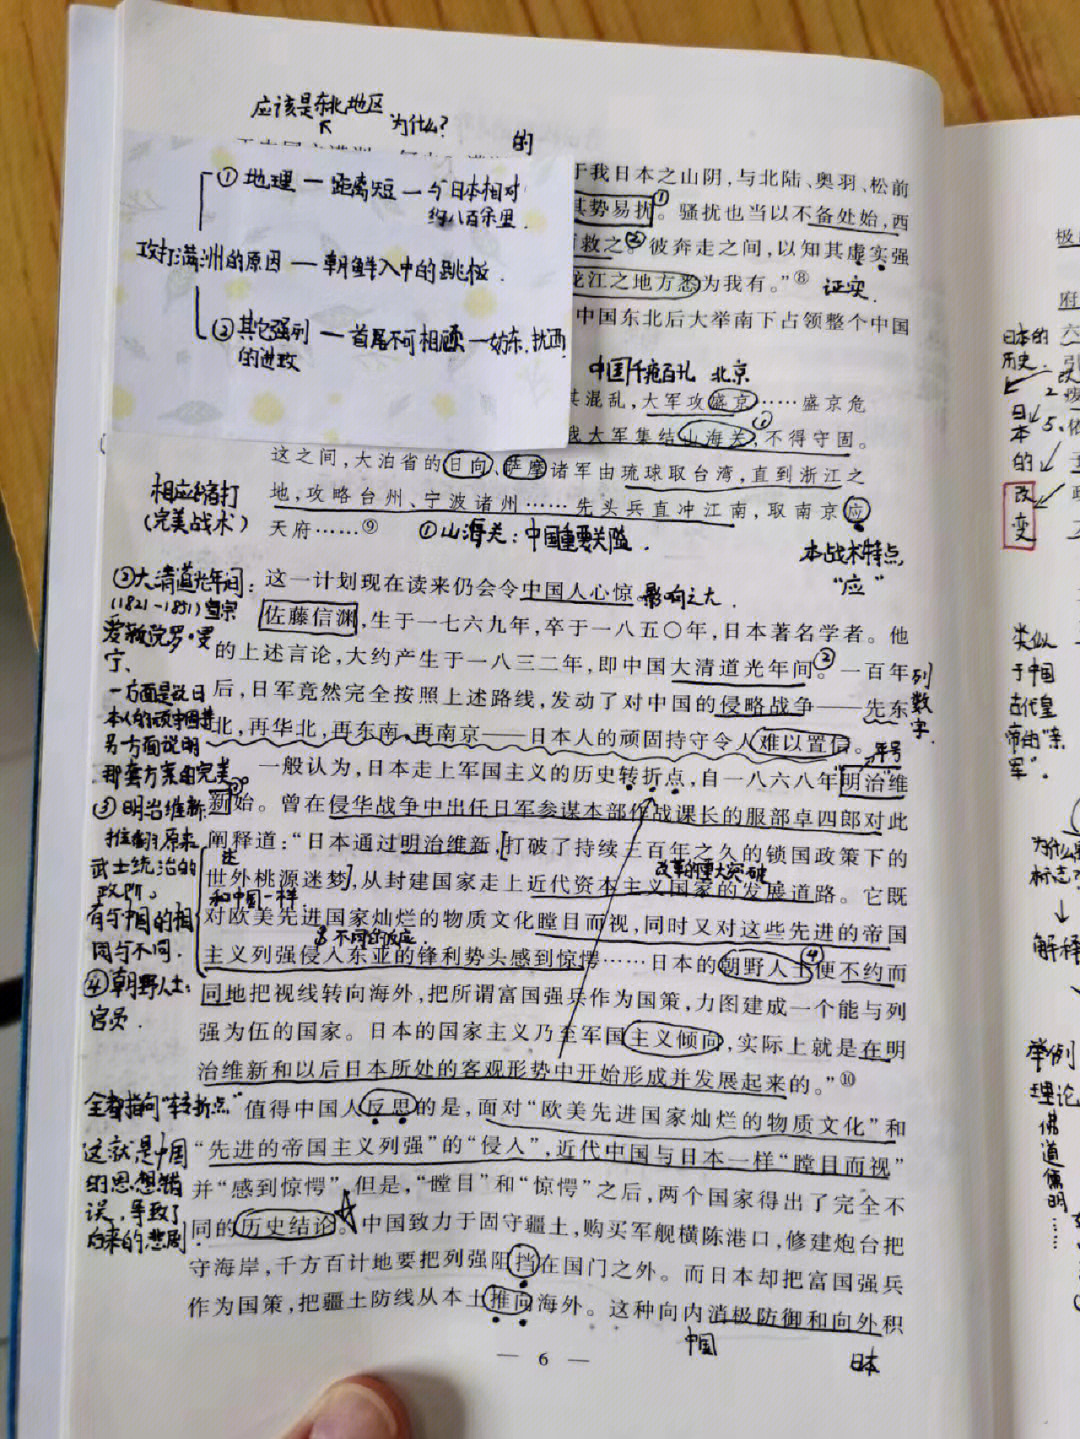 应该是东北地区
为什么?
的
①地理—距离短—与日本相对
约八百余里.
攻打满洲的原因—朝鲜入中的跳板.
②其它强列—首尾不可相顾—妨东、扰西
的进攻
于我日本之山阴,与北陆、奥羽、松前
其势易扰①。骚扰也当以不备处始,西
救之②。彼奔走之间,以知其虚实强
龙江之地方悉为我有。”⑧ 证实.
中国东北后大举南下占领整个中国
中国千疮百孔 北京
其混乱,大军攻盛京……盛京危
我大军集结山海关①,不得守固。
这之间,大泊省的日向、萨摩诸军由琉球取台湾,直到浙江之
地,攻略台州、宁波诸州……先头兵直冲江南,取南京应
天府……⑨ ①山海关:中国重要关隘.
相应缩打
(完美战术)
本战术特点,
“应”
这一计划现在读来仍会令中国人心惊。影响之大.
佐藤信渊,生于一七六九年,卒于一八五〇年,日本著名学者。他
的上述言论,大约产生于一八三二年,即中国大清道光年间②。一百年
后,日军竟然完全按照上述路线,发动了对中国的侵略战争——先东
北,再华北,再东南,再南京——日本人的顽固持守令人难以置信。
列
数
字.
年号
②大清道光年间:
(1821-1851)宣宗
爱新觉罗·旻
宁、
一方面是说日
另方面说明
那套方案的完美
一般认为,日本走上军国主义的历史转折点,自一八六八年“明治维
新③”始。曾在侵华战争中出任日军参谋本部作战课长的服部卓四郎对此
阐释道:“日本通过明治维新,打破了持续三百年之久的锁国政策下的
世外桃源迷梦,从封建国家走上近代资本主义国家的发展道路。它既
改革的重大突破
和中国一样
对欧美先进国家灿烂的物质文化瞠目而视,同时又对这些先进的帝国
不同的反应.
主义列强侵入东亚的锋利势头感到惊愕……日本的朝野人士④便不约而
同地把视线转向海外,把所谓富国强兵作为国策,力图建成一个能与列
强为伍的国家。日本的国家主义乃至军国主义倾向,实际上就是在明
治维新和以后日本所处的客观形势中开始形成并发展起来的。”⑩
③明治维新:
推翻原来
武士统治的
政府。
有与中国的相
同与不同.
④朝野人士:
官员.
全都指向“转折点”
值得中国人反思的是,面对“欧美先进国家灿烂的物质文化”和
“先进的帝国主义列强”的“侵入”,近代中国与日本一样“瞠目而视”
并“感到惊愕”。但是,“瞠目”和“惊愕”之后,两个国家得出了完全不
同的历史结论。中国致力于固守疆土,购买军舰横陈港口,修建炮台把
守海岸,千方百计地要把列强阻挡在国门之外。而日本却把富国强兵
作为国策,把疆土防线从本土推向海外。这种向内消极防御和向外积
这就是中国
的思想错
误,导致了
后来的悲剧.
中国
日本
— 6 —
日本的
历史
日
本
的
改
变
类似
于中国
古代皇
帝的“亲
军”.
标志
解释
举例
理论
佛
道
儒
明
……